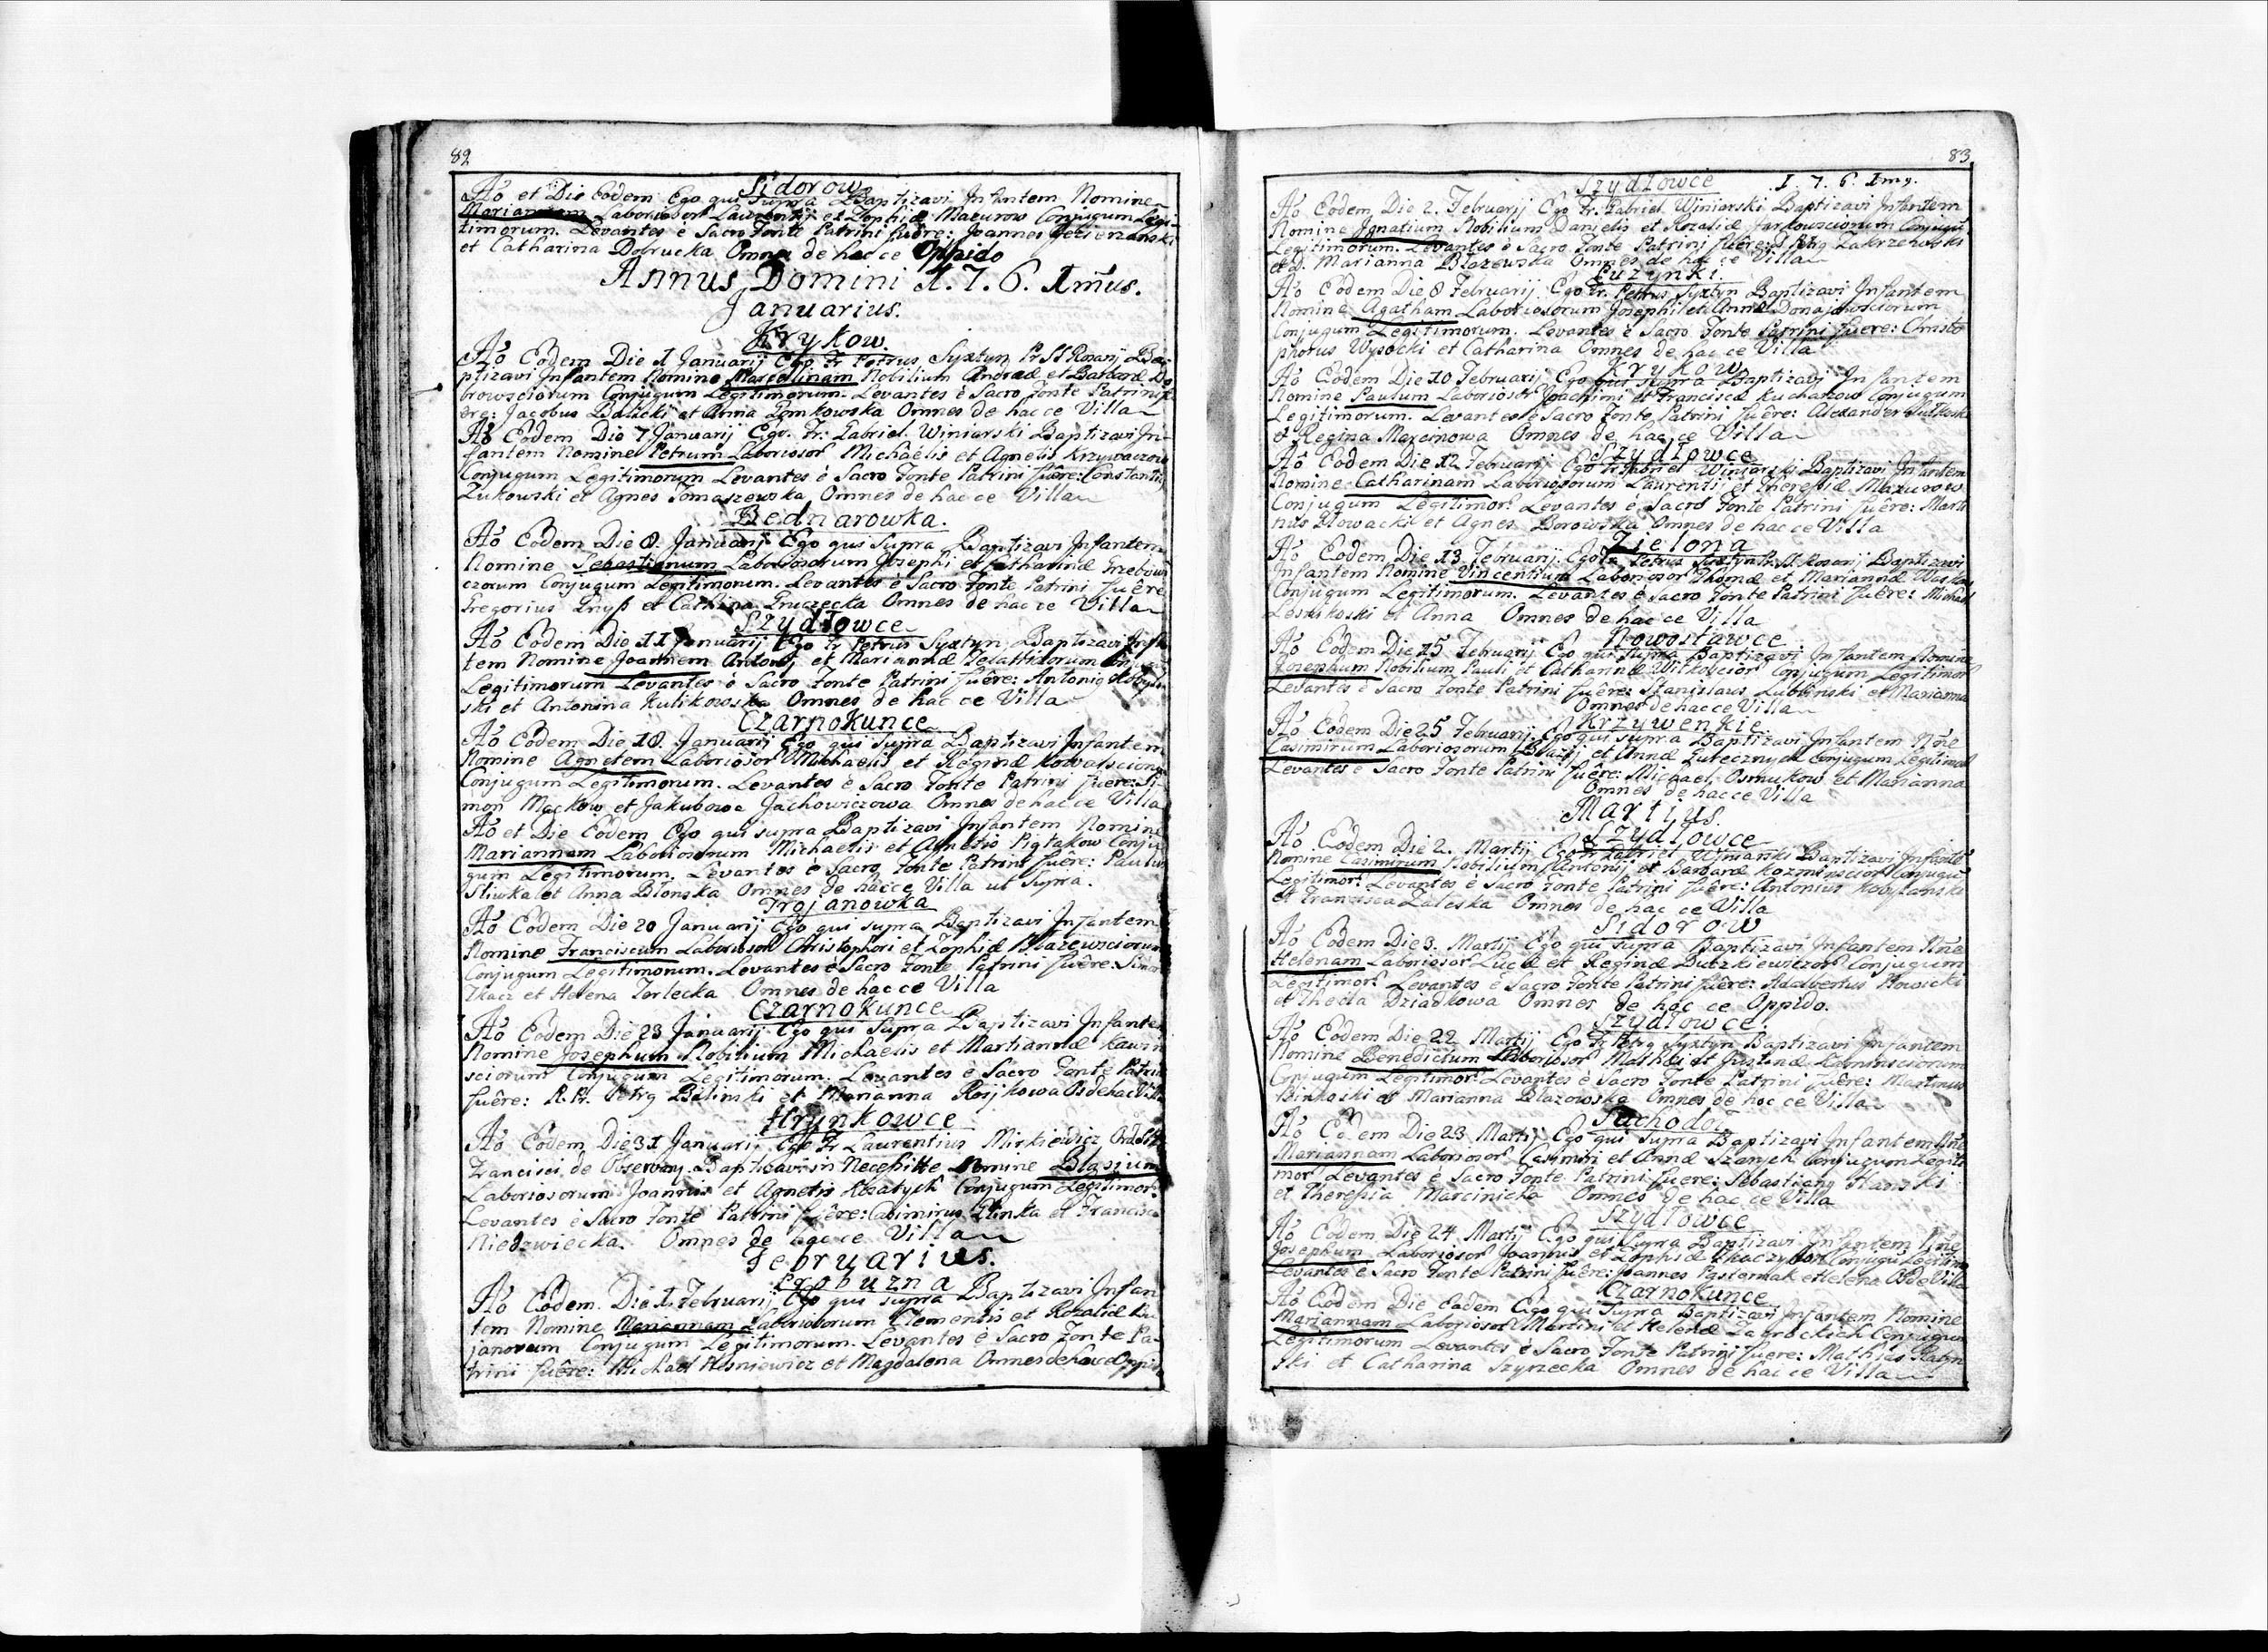 82
Sidorow
Aõ et Die Eodem Ego qui Supra Baptizavi Infantem Nomine
Mariannam Laboriosor Laurentij et Zophiæ Mazurow Conjugum Legi-
timorum. Levantes è Sacro Fonte Patrini fuêre: Joannes
et Catharina Dobrucka Omnes de hac ce Oppido
Annus Domini 1. 7. 6. 1mus.
Januarius.
Krykow.
Aõ Eodem Die 1 Januarij Ego Fr Petrus Syxtyn Pr SS Rosarij Ba-
ptizavi Infantem Nomine Marcellinam Nobilium Andreæ et Barbaræ Do
browsciorum Conjugum Legitimorum. Levantes è Sacro Fonte Patrini fu
ère: Jacobus Balicki et Anna Domkowska Omnes de hac ce Villa
Aõ Eodem Die 7 Januarij Ego. Fr: Gabriel. Winiarski Baptizavi In-
fantem Nomine Petrum Laboriosor Michaëlis et Agnetis Krzywaczow
Conjugum Legitimorum Levantes è Sacro Fonte Patrini fuêre: Constantin
Zukowski et Agnes Tomaszewska Omnes de hac ce Villa
Bednarowka.
Aõ Eodem Die 8. Januarij Ego qui Supra Baptizavi Infantem
Nomine Sebastianum Laboriosorum Josephi et Catharinæ
czorum Conjugum Legitimorum. Levantes è Sacro Fonte Patrini fuêre
Gregorius Gnyß et Cathrina Gruczecka Omnes de hac ce Villa
Szydłowce
Aõ Eodem Die 11 Januarij Ego Fr Petrus Syxtyn Baptizavi Infan
tem Nomine Joannem Antonij et Mariannæ Conju
Legitimorum Levantes è Sacro Fonte Patrini fuêre: Antonig
ski et Antonina Kulikowska Omnes de hac ce Villa
Czarnokunce
Aõ Eodem Die 18. Januarij Ego qui Supra Baptizavi Infantem
Nomine Agnetem Laboriosor Michaelis et Reginæ Kowalsciorum
Conjugum Legitimorum. Levantes è Sacro Fonte Patrini fuere: Si-
mon Mackow et Jakubowa Jachowiczowa Omnes de hac ce Villa
Aõ et Die Eodem Ego qui supra Baptizavi Infantem Nomine
Mariannam Laboriosorum Michaelis et Agnetis Pigtakow Conju
gum Legitimorum. Levantes è Sacro Fonte Patrini fuêre: Paulus
Sliwka et Anna Błonska Omnes de hac ce Villa ut Supra.
Trojanowka
Aõ Eodem Die 20 Januarij Ego qui supra Baptizavi Infantem
Nomine Franciscum Laboriosor Christophori et Zophiæ Błazewsciorum
Conjugum Legitimorum. Levantes è Sacro Fonte Patrini fuêre: Simon
Tkacz et Helena Terlecka Omnes de hac ce Villa
Czarnokunce
Aõ Eodem Die 23 Januarij Ego qui Supra Baptizavi Infantem
Nomine Josephum Nobilium Michaelis et Martiannæ
sciorum Conjugum Legitimorum. Levantes è Sacro Fonte Patrini
fuêre: R. Pr. Petrg Bilinski et Marianna Os de hac Villa
Hrynkowce
Aõ Eodem Die 31 Januarij Ego Fr Laurentius Mirkiewicz Ord S
Francisci de Observan. Baptizavi in Necessitte Nomine Blasium
Laboriosorum Joannis et Agnetis Kosatych Conjugum Legitimor.
Levantes è Sacro Fonte Patrini fuêre: Casimirus Glinka et Francisca
Niedzwiecka. Omnes de hac ce Villa
Februarius.
Probuzna
Aõ Eodem. Die 1. Februarij Ego qui supra Baptizavi Infan
tem Nomine Mariannam Laboriosorum Clementis et Rozaliæ
janorum Conjugum Legitimorum. Levantes è Sacro Fonte Pa-
trini fuêre: Michael et Magdalena Omnes de hac ce Oppido
83
Szydłowce 1. 7. 6. 1mg.
Aõ Eodem Die 2. Februarij Ego Fr. Gabriel. Winiarski Baptizavi Infantem
Nomine Ignatium Nobilium Danielis et Rozaliæ Jarkowscionum Conjugu
Legitimorum. Levantes è Sacro Fonte Patrini fuêre: Zakrzewski
et D. Marianna Błazewska Omnes de hac ce Villa
Luzynki.
Aõ Eodem Die 8 Februarij. Ego Fr. Petrus Syxtyn Baptizavi Infantem
Nomine Agatham Laboriosorum Josephi et Annæ
Conjugum Legitimorum. Levantes è Sacro Fonte Patrini fuêre: Christo
phorus Wysocki et Catharina Omnes de hac ce Villa
Krykow
Aõ Eodem Die 10 Februarij Ego qui supra Baptizavi Infantem
Nomine Paulum Laboriosor Joachimi et Franciscæ Kucharzow Conjugum
Legitimorum. Levantes è Sacro Fonte Patrini fuêre: Alexander
et Regina Marcinowa Omnes de hac ce Villa
Szydłowce
Aõ Eodem Die 12 Februarij Ego Fr Gabriel Winiarski Baptizavi Infantem
Nomine Catharinam Laboriosorum Laurentij et Theressiæ Mazurow
Conjugum Legitimor. Levantes è Sacro Fonte Patrini fuêre: Marti
nus Nowacki et Agnes Borowska Omnes de hac ce Villa
Zielona
Aõ Eodem Die 13 Februarij. Ego Fr Petrus Syxtyn Pr. SS. Rosarij Baptizavi
Infantem Nomine Vincentium Laboriosor Thomæ et Mariannæ
Conjugum Legitimorum. Levantes è Sacro Fonte Patrini fuêre: Michael
Lesnikoski et Anna Omnes de hac ce Villa
Nowostawce
Aõ Eodem Die 15 Februarij Ego qui Supra Baptizavi Infantem Nomine
Josephum Nobilium Pauli et Catharinæ Witkoscior Conjugum Legitimor
Levantes è Sacro Fonte Patrini fuêre: Stanislaus Lubbinski et Marianna
Omnes de hac ce Villa
Krzywenkie
Aõ Eodem Die 25 Februarij. Ego qui supra Baptizavi Infantem Nñe
Casimirum Laboriosorum Błazij et Annæ Conjugum Legitimor
Levantes è Sacro Fonte Patrini fuêre: Michael Osmukow et Marianna
Omnes de hac ce Villa
Martius.
Szydłowce
Aõ Eodem Die 2. Martij Ego Fr Gabriel Winiarski Baptizavi Infante
Nomine Casimirum Nobilium Antonij et Barbaræ Kozminscior Conjugu
Legitimor. Levantes è Sacro Fonte Patrini fuêre: Antonius Kobylanski
et Francisca Zaleska Omnes de hac ce Villa
Sidorow
Aõ Eodem Die 3. Martij Ego qui supra Baptizavi Infantem Nñe
Helenam Laboriosor Lucæ et Reginæ Butzkiewitzor Conjugum
Legitimor. Levantes è Sacro Fonte Patrini fuêre: Adalbertus Nowicki
et Thecla Dziadkowa Omnes de hoc ce Oppido.
Szydłowce.
Aõ Eodem Die 22 Martij Ego Fr Petrg Syxtyn Baptizavi Infantem
Nomine Benedictum Laboriosor Mathæi et Justinæ Kaminsciorum
Conjugum Legitimor. Levantes è Sacro Fonte Patrini fuêre: Martinus
Binkoski et Marianna Błazowska Omnes de hoc ce Villa
Suchodoł
Aõ Eodem Die 23 Martij Ego qui supra Baptizavi Infantem Nñe
Mariannam Laboriosor Casimiri et Annæ Szarych Conjugum Legiti
mor Levantes è Sacro Fonte Patrini fuere: Sebastiang Ilanski
et Theressia Marcinicka Omnes de hac ce Villa
Szydłowce
Aõ Eodem Die 24 Martij Ego qui Supra Baptizavi Infantem Nñe
Josephum Laboriosor Joannis et Zophiæ Tkaczykow Conjugu Legitimo
Levantes è Sacro Fonte Patrini fuêre: Joannes Pasternak et Helena Os de Villa
Czarnokunce
Aõ Eodem Die Eadem Ego qui Supra Baptizavi Infantem Nomine
Mariannam Laboriosor Martini et Helenæ Zagrockich Conjugum
Legitimorum Levantes è Sacro Fonte Patrini fuere: Mathias Ratyn
ski et Catharina Szyrzecka Omnes de hac ce Villa